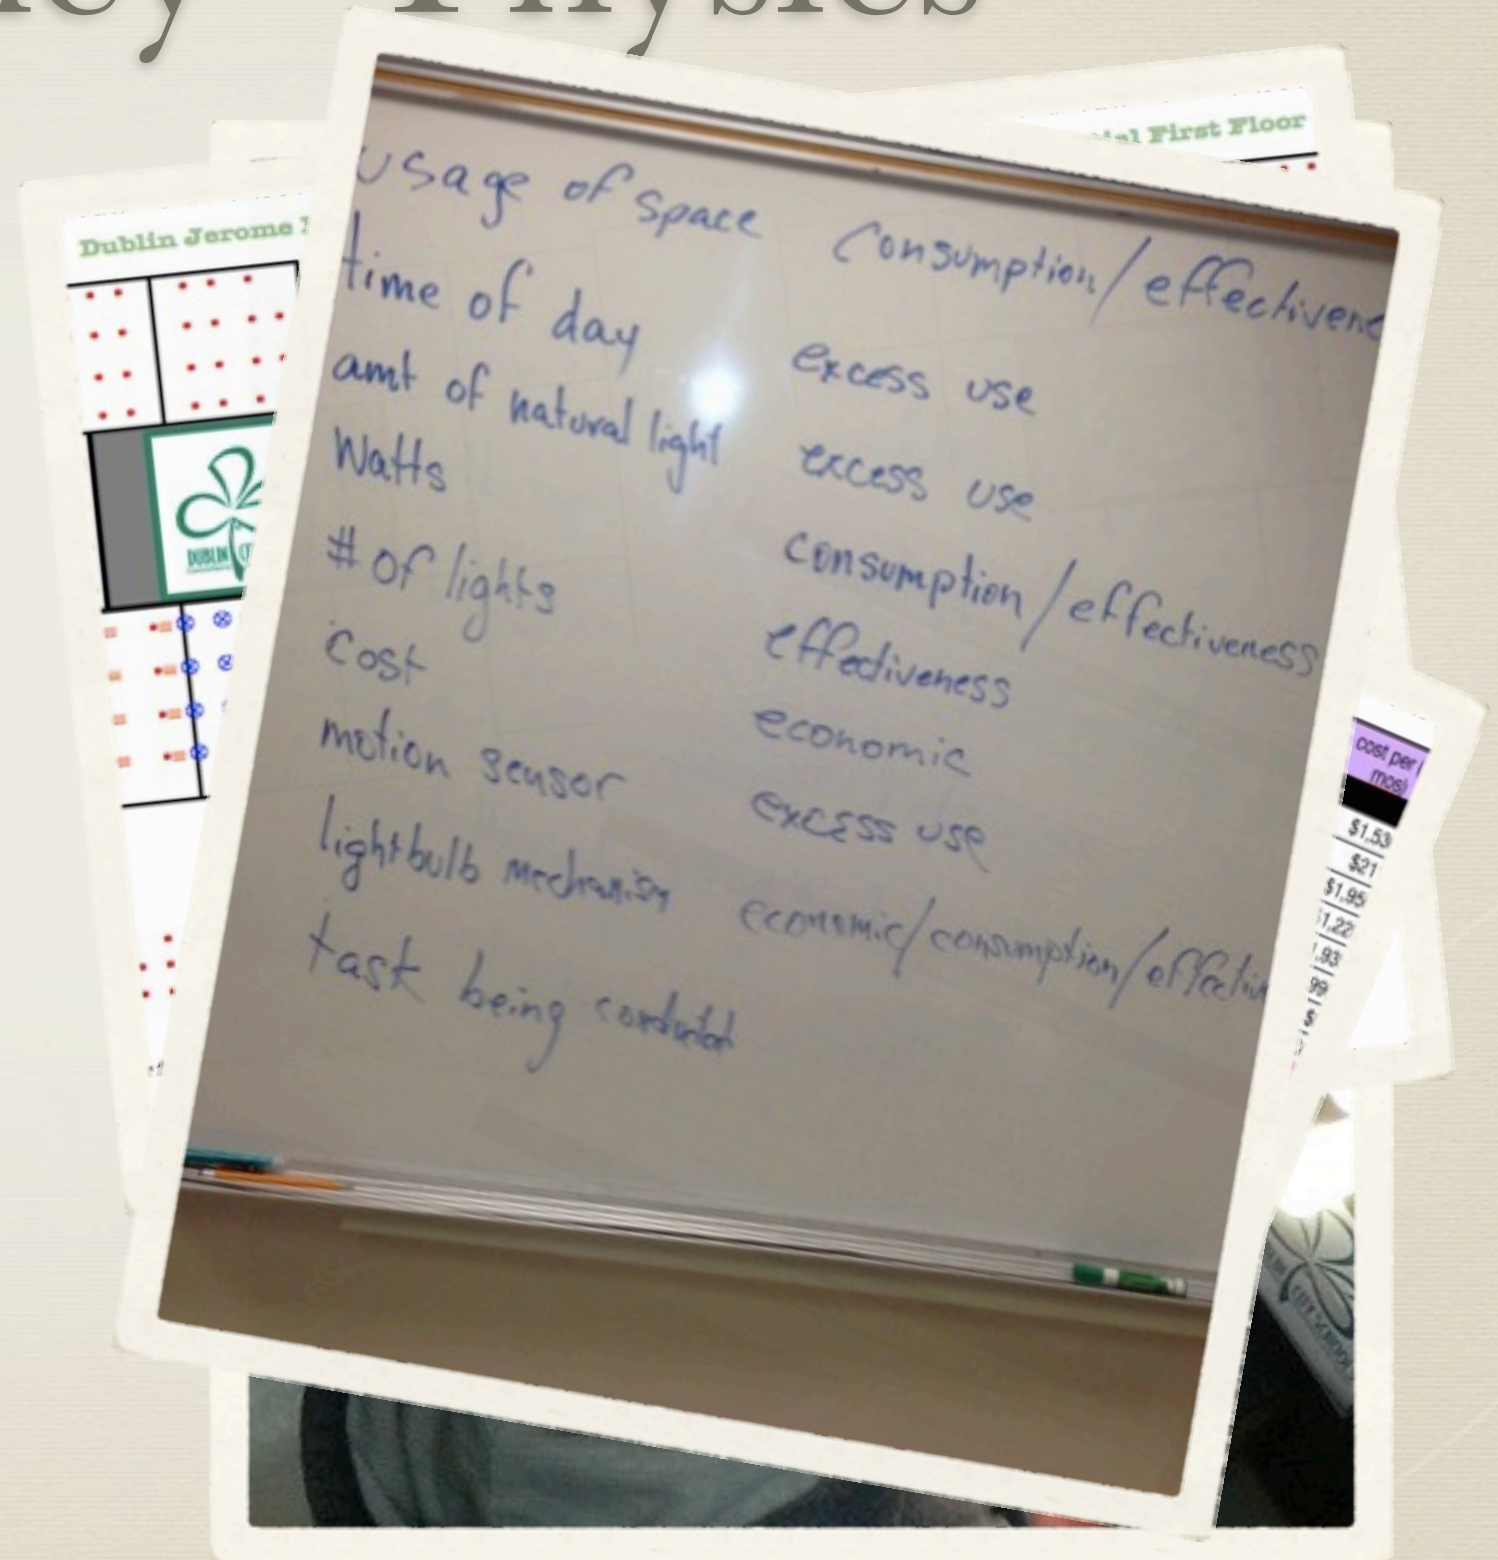 Physics
Dublin Jerome
First Floor
usage of space consumption/effectivene
time of day excess use
amt of natural light excess use
Watts consumption/effectiveness
# of lights effectiveness
cost economic
motion sensor excess use
lightbulb mechanism economic/consumption/effectiv
task being conducted
DUBLIN
cost per
mos)
$1,53
$21
$1,95
1,22
,93
99
$
CITY SCHOOL